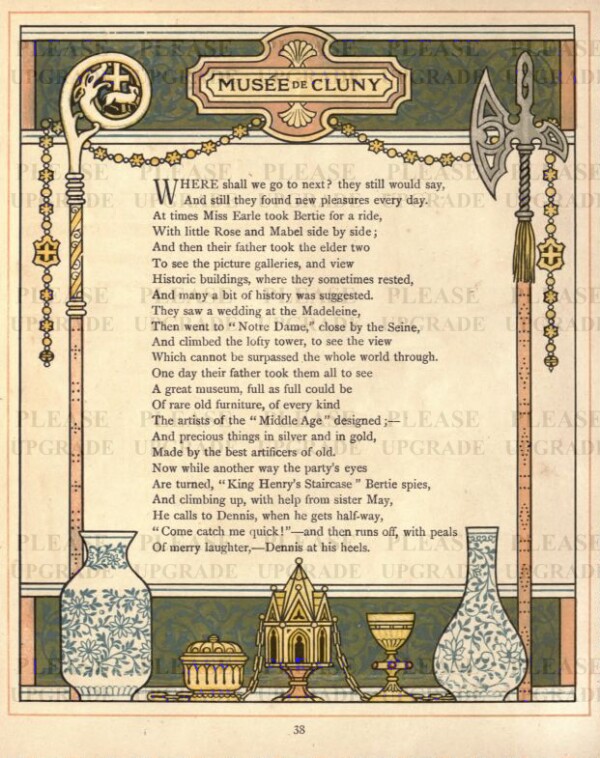 MUSÉE DE CLUNY
WHERE shall we go to next? they still would say,
And still they found new pleasures every day.
At times Miss Earle took Bertie for a ride,
With little Rose and Mabel side by side;
And then their father took the elder two
To see the picture galleries, and view
Historic buildings, where they sometimes rested,
And many a bit of history was suggested.
They saw a wedding at the Madeleine,
Then went to "Notre Dame," close by the Seine,
And climbed the lofty tower, to see the view
Which cannot be surpassed the whole world through.
One day their father took them all to see
A great museum, full as full could be
Of rare old furniture, of every kind
The artists of the "Middle Age" designed;—
And precious things in silver and in gold,
Made by the best artificers of old.
Now while another way the party's eyes
Are turned, "King Henry's Staircase" Bertie spies,
And climbing up, with help from sister May,
He calls to Dennis, when he gets half-way,
"Come catch me quick!"—and then runs off, with peals
Of merry laughter,—Dennis at his heels.
38
PLEASE UPGRADE